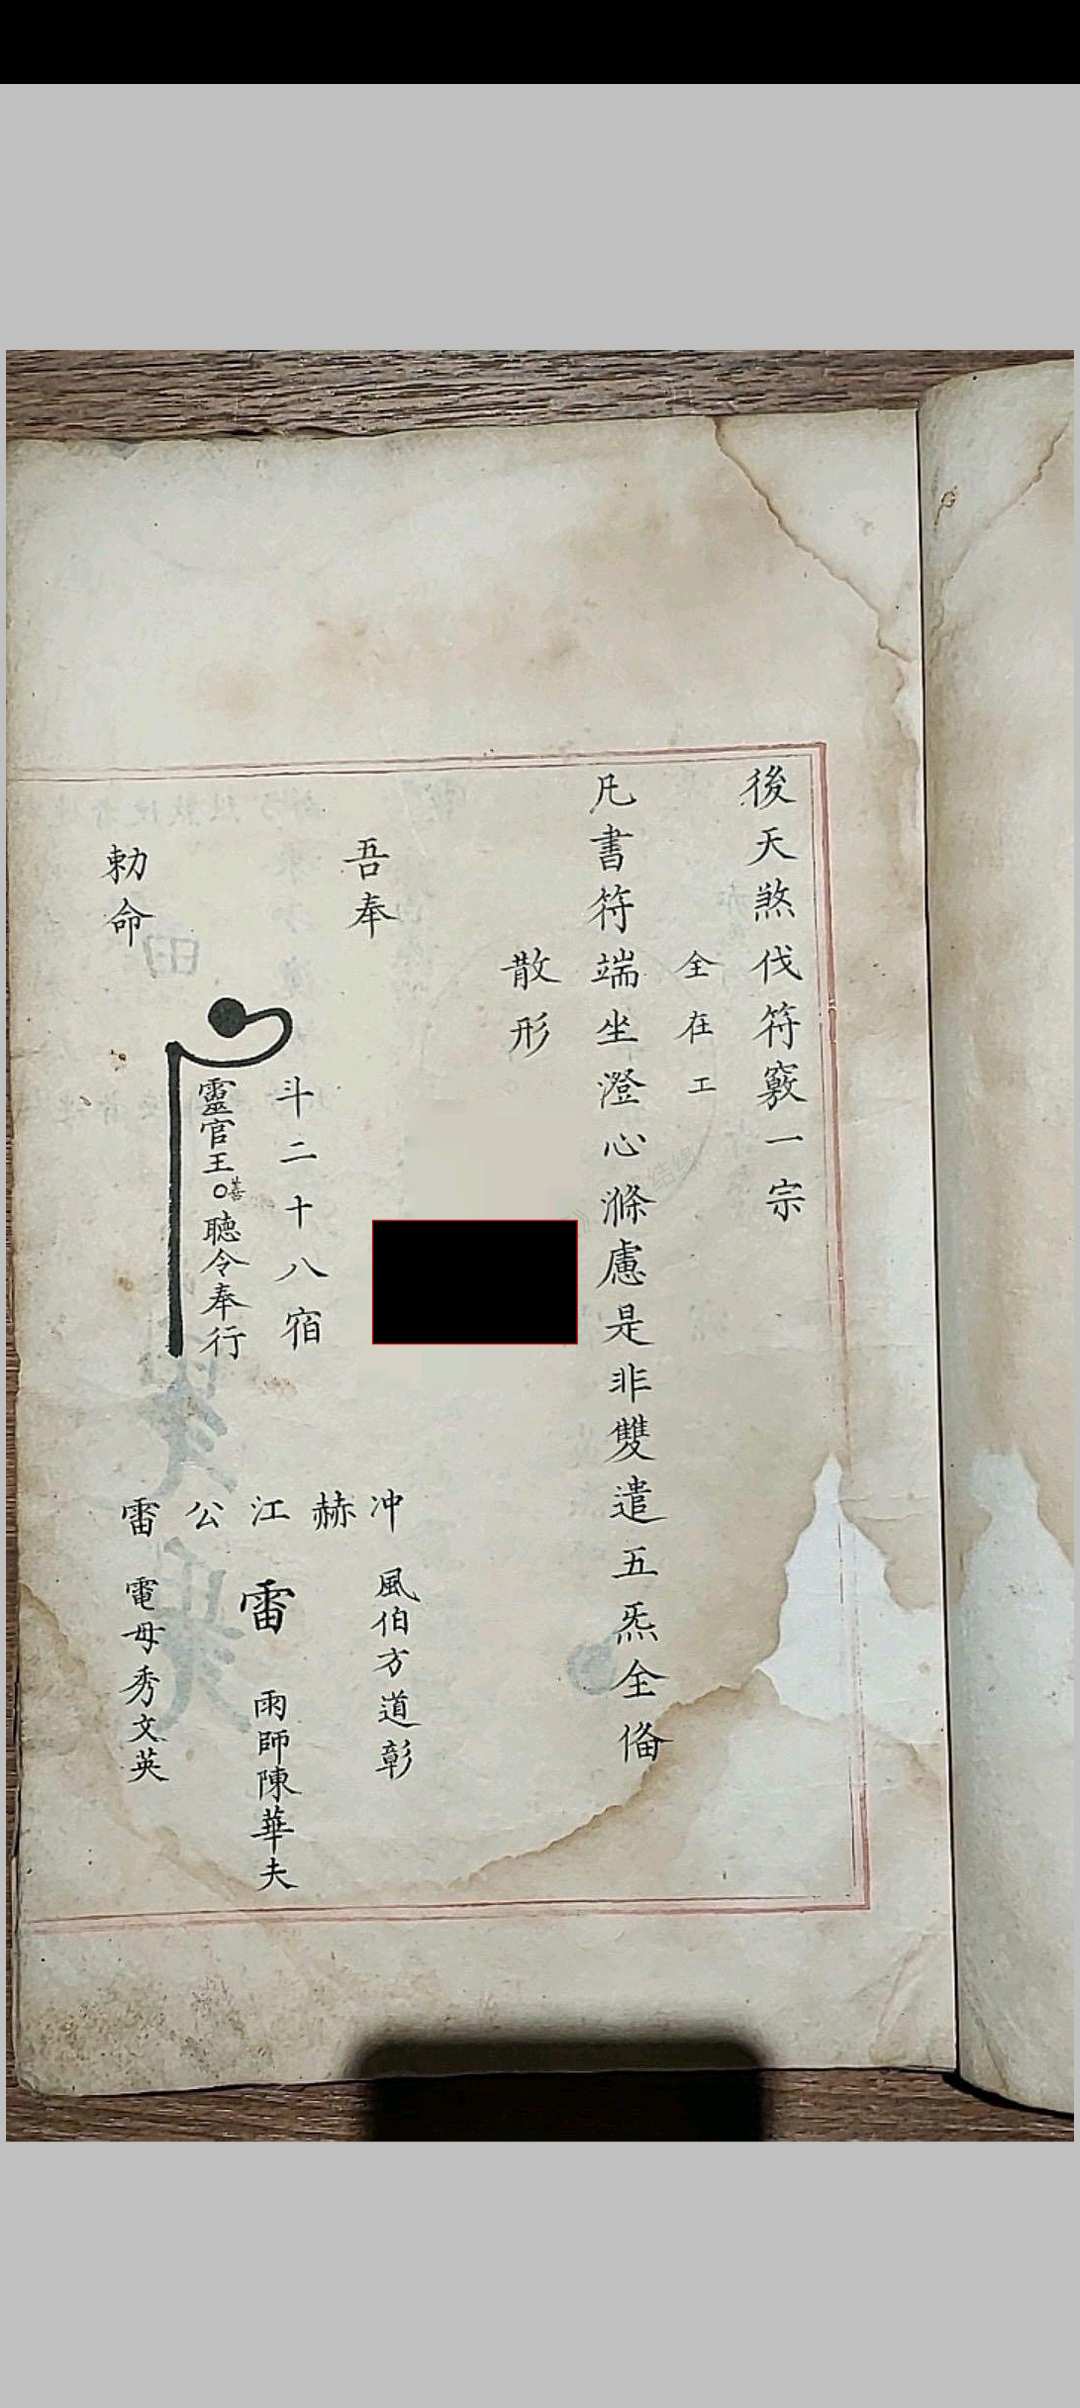 後天煞伐符竅一宗
全在工
凡書符端坐澄心滌慮是非雙遣五炁全俻
散形
吾奉
冲赫江公雷
風伯方道彰
斗二十八宿
雷
雨師陳華夫
靈官王善聴令奉行
勅命
電母秀文英